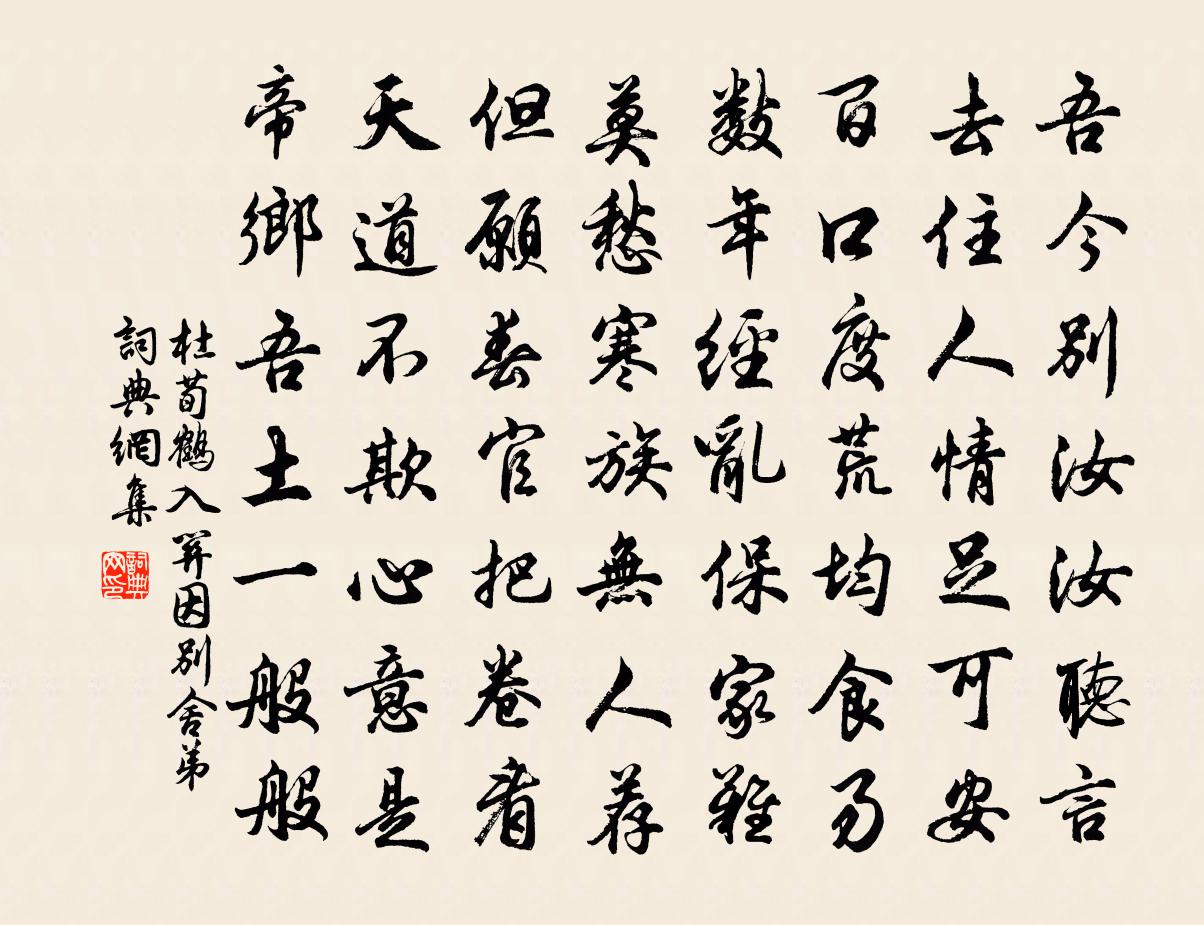 吾今別汝汝聽言
去住人情足可安
百口度荒均食易
數年經亂保家難
莫愁寒族無人薦
但願春官把卷看
天道不欺心意是
帝鄉吾土一般般
杜荀鶴入關因別舍弟
詞典網集
詞典网印